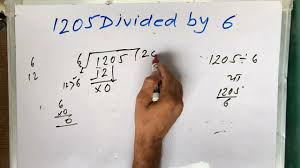 1205 Divided by 6
6
12
6
x0
0
12>6
6 1205 (20
12
x0
1205÷6
1205
6